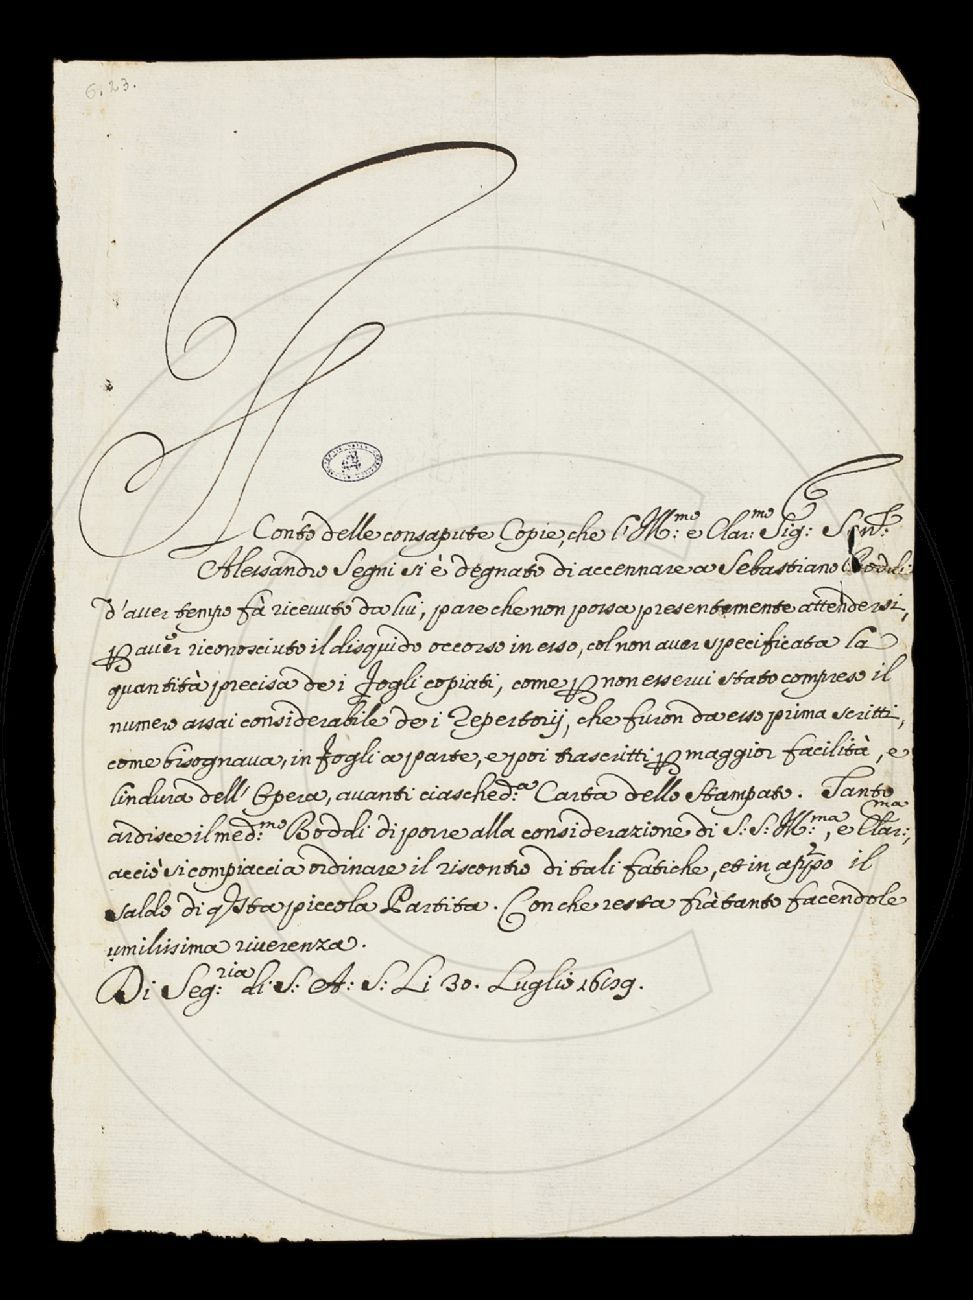 6. 23.
Il
Conto delle consapute Copie, che l'Ill:mo e Clar:mo Sig: Sen:
Alessandro Segni si è degnato di accennare a Sebastiano Boddi
d'aver tempo fà ricevuto da lui, pare che non possa presentemente attendersi,
p aver riconosciuto il disguido occorso in esso, col non aver specificata la
quantità precisa de i Fogli copiati, come p non esservi stato compreso il
numero assai considerabile de i Repertorij, che furon da esso prima scritti,
come bisognava, in Fogli a parte, e poi trascritti p maggior facilità, e
lindura dell' Opera, avanti ciasched:a Carta dello Stampato. Tanto
ardisce il med:mo Boddi di porre alla considerazione di S: S: Ill:ma, e Clar:ma,
acciò si compiaccia ordinare il riscontro di tali fatiche, et in appo il
saldo di qsta piccola Partita. Con che resta frà tanto facendole
umilissima riverenza.
Di Seg:ria di S: A: S: Li 30. Luglio